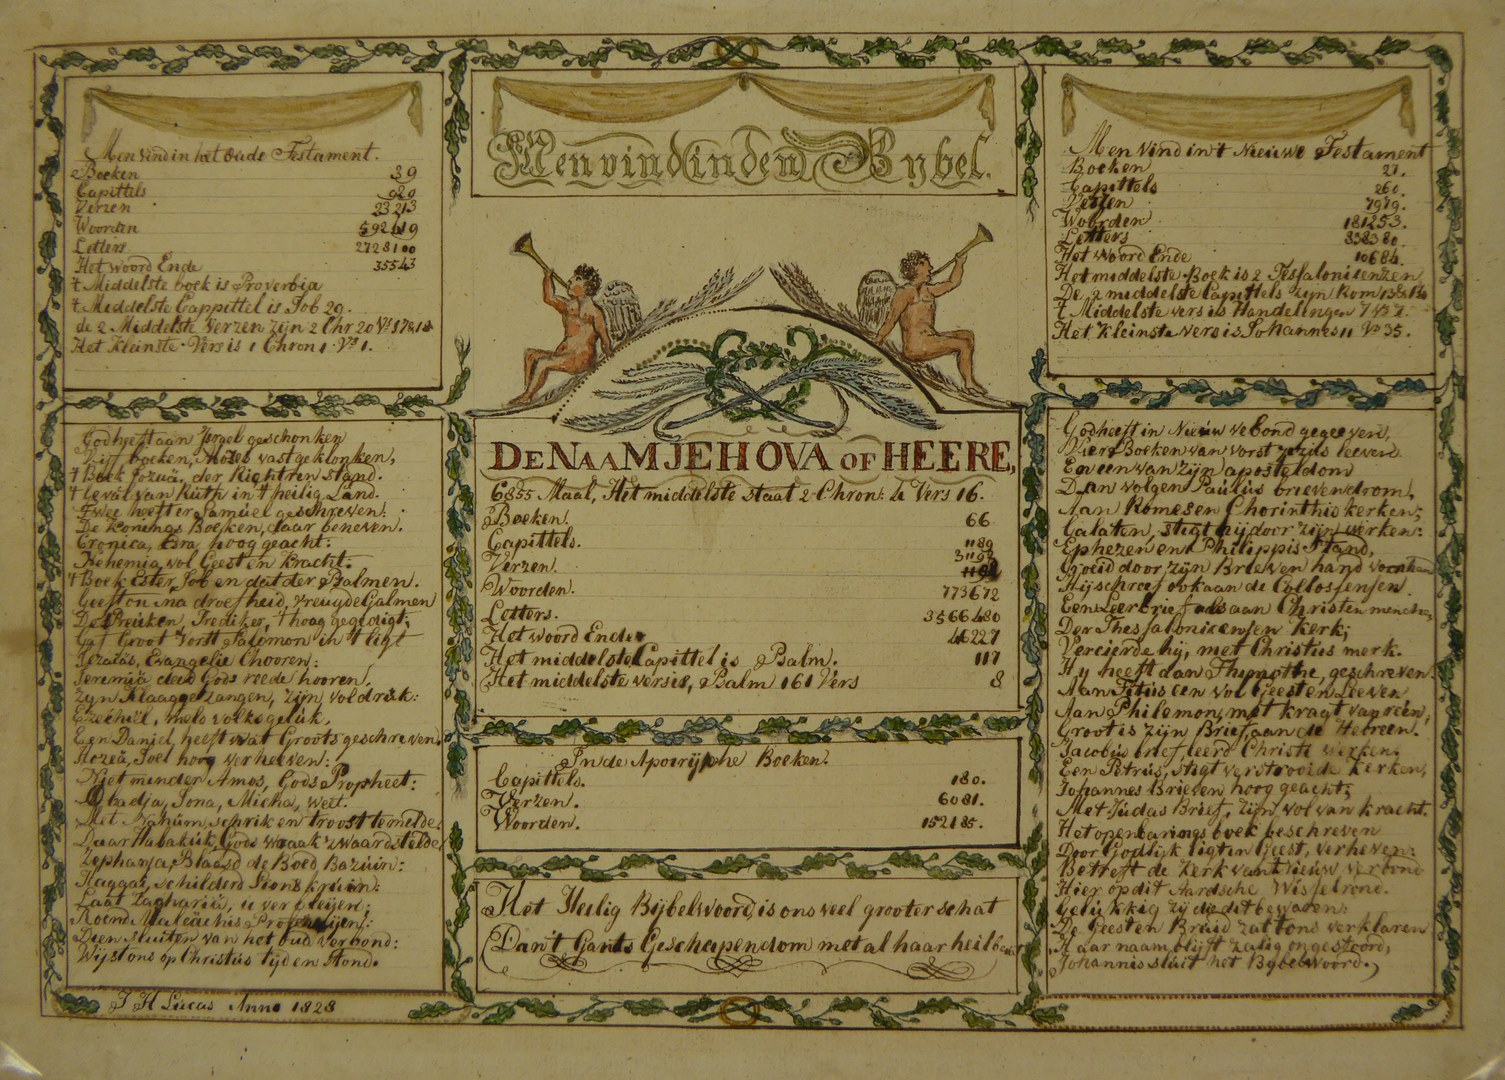 Men vind in den Bybel.
Men vind in het Oude Testament.
Boeken 39
Capittels 929
Verzen 23213
Woorden 592419
Letters 2728100
Het woord Ende 35543
't Middelste boek is Proverbia
't Middelste Cappittel is Job 29.
de 2 Middelste Verzen zijn 2 Chr 20 Vs 17&18
Het Kleinste Vers is 1 Chron 1 Vs 1.
Men vind in't Nieuwe Testament
Boeken 27.
Capittels 260.
Verzen 7979.
Woorden 181253.
Letters 838380.
Het woord Ende 10684.
Het middelste Boek is 2 Tessalonicenzen
De 2 middelste Capittels zijn Rom 13& 14
't Middelste vers is Handelingen 7 Vs 7.
Het Kleinste vers is Johannes 11 Vs 35.
DE NAAM JEHOVA OF HEERE,
6855 Maal, Het middelste staat 2 Chron: 4 Vers 16.
Boeken. 66
Capittels. 1189
Verzen.
Woorden. 773672
Letters. 3566480
Het woord Ende 46227
Het middelste Capittel is Psalm. 117
Het middelste vers is, Psalm 161 Vers 8
In de Apocrijphe Boeken.
Capittels. 180.
Verzen. 6081.
Woorden. 152185.
Het Heilig Bijbelwoord, is ons veel grooter schat
Dan't Gants Geschapendom met al haar heil
God heeft aan Israel geschonken
Vijf boeken, Mozes vast geklonken,
't Boek Jozuä, der Richtren stand.
't Geval van Ruth in 't heilig Land.
Twee heeft er Samuel geschreven:
De Konings Boeken, daar beneven.
Cronica, Esra, hoog geacht:
Nehemia, vol Geest en kracht.
't Boek Ester, Job en dat der Psalmen.
Geeft ou na droefheid, vreugde Galmen
De Spreuken, Prediker, 't hoog gezegt;
Gaf Groot Vorst Salomon in 't ligt
Jezaias, Evangelie Chooren:
Jeremiä deed Gods reede hooren,
Zyn Klaaggezangen, zijn vol druk:
Ezechiël, meld volksgeluk,
Een Daniel, heeft wat Groots geschreven.
Hozea, Joel hoog verheven:
Niet minder Amos, Gods Propheet:
Obadja, Jona, Micha, weet.
Met Nahum, schrik en troost temelde,
Daar Habakuk, Gods wraak 's waards telde
Zephanja, Blaasd de Boed Bazuin:
Haggai, schilderd Sions kruin:
Laat Zacharia, u verbleijen:
Koemd Maleachis
Dien sluiter van het oud Verbond:
Wijst ons op Christus tijd en Stond.
God heeft in Nieuw verbond gegeeven,
Vier Boeken van Vorst Jezus leeven
En een van Zijn aposteldom
Dan volgen Paulus brievendrom,
Aan Romes en Chorinthis kerken;
Galaten, stigt hij door zijn werken:
Ephezen en Philippis Stand,
Groeid door zijn Brieven hand voor hand
Hij schreef ook aan de Collossensen.
Een Leerbrief als aan Christen menschen,
Der Thessalonicensen Kerk;
Vercierde hy, met Christus merk.
Hy heeft aan Thymothe, geschreven:
Aan Titus een vol Geest en Leeven
Aan Philemon, met kragt van reen,
Groot is zijn Brief aan de Hebreen.
Jacobus brief leerd Christi werken:
Een Petrus, stigt verstrooide Kerken,
Johannes Brieven hoog geacht;
Met Judas Brief, zijn vol van kracht.
Het openbarings boek beschreven
Door Godlijk ligt en Geest, verheven:
Betreft de Kerk van Nieuw verbond
Hier op dit Aardsche Wisselrond.
Gelukkig zij die dit bewaren:
De Geest en Bruid zat tond verklaren
Haar naam blijft zalig ongestoord,
Johannis sluit het Bybelwoord.
J H Lucas Anno 1828